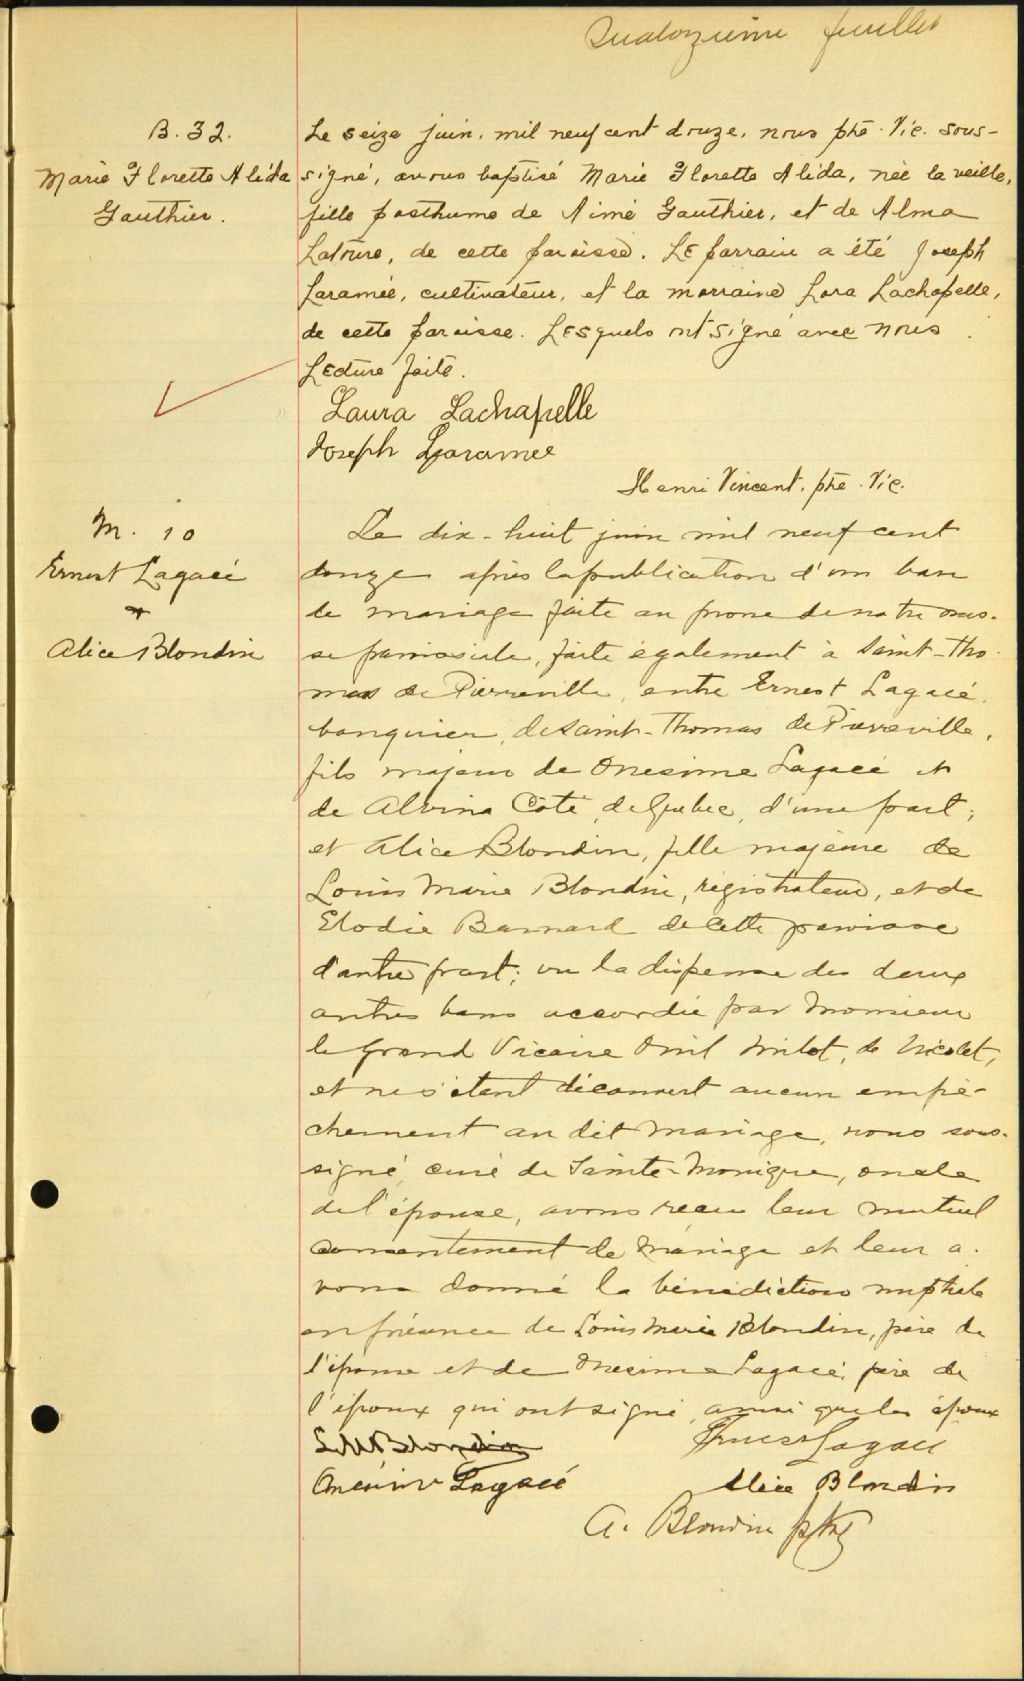 Quatorzième feuillet
B. 32.
Marie Florette Alida
Gauthier.
Le seize juin, mil neuf cent douze, nous ptre. Vic. sous-
signé, avons baptisé Marie Florette Alida, née la veille,
fille posthume de Aimé Gauthier, et de Alma
Latour, de cette paroisse. Le parrain a été Joseph
Laramée, cultivateur, et la marraine Lora Lachapelle,
de cette paroisse. Lesquels ont signé avec nous.
Lecture faite.
Laura Lachapelle
Joseph Laramee
Henri Vincent. ptre. Vic.
M. 10
Ernest Lagacé
+
Alice Blondin
Le dix-huit juin mil neuf cent
douze après la publication d'un ban
de mariage faite au prône de notre mes-
se paroissiale, faite également à Saint-Tho-
mas de Pierreville, entre Ernest Lagacé,
banquier, de Saint-Thomas de Pierreville,
fils majeur de Onesime Lagacé et
de Alvina Côté, de Québec, d'une part;
et Alice Blondin, fille majeure de
Louis Marie Blondin, régistrateur, et de
Elodie Barnard de cette paroisse
d'autre part; vu la dispense des deux
autres bans accordée par Monsieur
le Grand Vicaire Milot, de Nicolet,
et ne s'étant découvert aucun empê-
chement au dit mariage, nous sous-
signé, curé de Sainte-Monique, oncle
de l'épouse, avons reçu leur mutuel
consentement de mariage et leur a-
vons donné la bénédiction nuptiale
en présence de Louis Marie Blondin, père de
l'épouse et de Onesime Lagacé, père de
l'époux qui ont signé, ainsi que les époux
L M Blondin
Ernest Lagacé
Onésime Lagacé
Alice Blondin
A. Blondin ptre